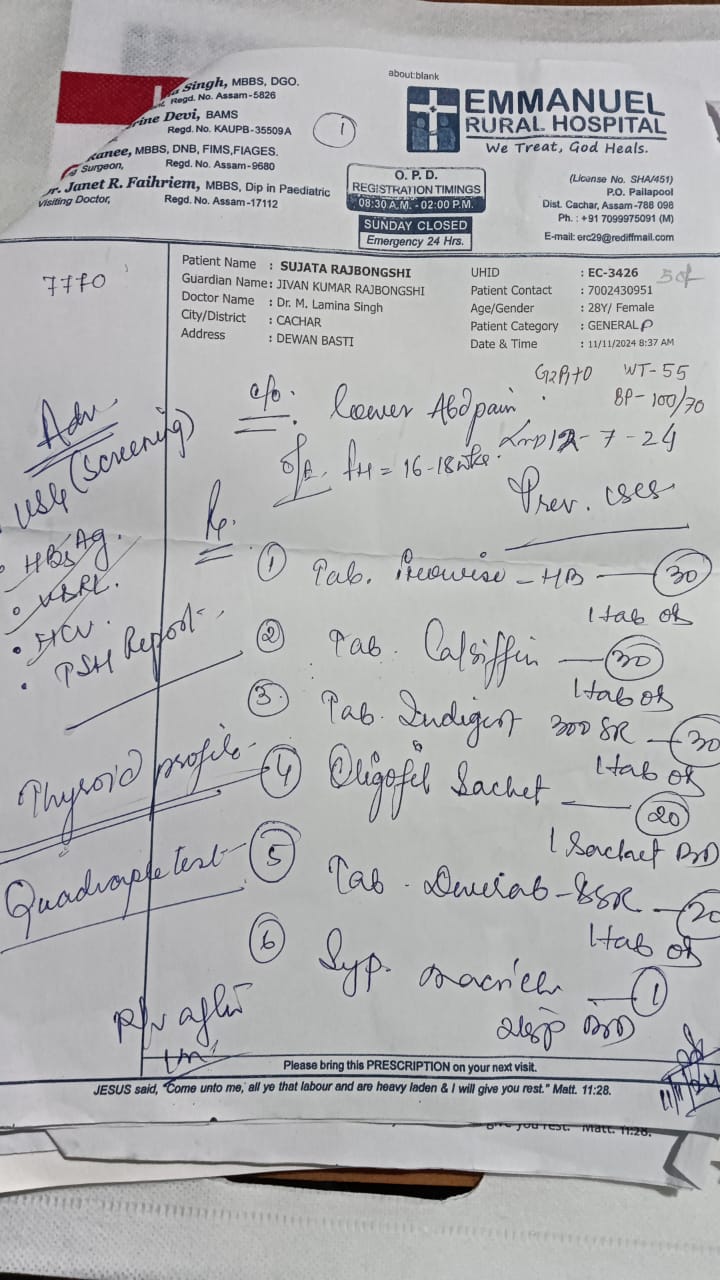 about:blank
Singh, MBBS, DGO.
Regd. No. Assam-5826
rine Devi, BAMS
Regd. No. KAUPB-35509A
Ranee, MBBS, DNB, FIMS,FIAGES.
Surgeon, Regd. No. Assam-9680
r. Janet R. Faihriem, MBBS, Dip in Paediatric
Visiting Doctor, Regd. No. Assam-17112
1
EMMANUEL
RURAL HOSPITAL
We Treat, God Heals.
O. P. D.
REGISTRATION TIMINGS
08:30 A.M. - 02:00 P.M.
SUNDAY CLOSED
Emergency 24 Hrs.
(License No. SHA/451)
P.O. Pailapool
Dist. Cachar, Assam-788 098
Ph. : +91 7099975091 (M)
E-mail: erc29@rediffmail.com
7770
Patient Name : SUJATA RAJBONGSHI
Guardian Name : JIVAN KUMAR RAJBONGSHI
Doctor Name : Dr. M. Lamina Singh
City/District : CACHAR
Address : DEWAN BASTI
UHID : EC-3426
Patient Contact : 7002430951
Age/Gender : 28Y/ Female
Patient Category : GENERAL P
Date & Time : 11/11/2024 8:37 AM
WT-55
BP-100/70
c/o. lower Abd pain.
LMP 12-7-24
O/E. fH = 16-18 wks.
Prev. CSCS
Adv
USG (Screening)
• HBsAg.
• VDRL.
• HCV.
• TSH Report
Thyroid profile
Quadruple test
Rx.
① Tab. - HB — 30
1 tab od
② Tab. — 30
1 tab od
③ Tab. 300 SR — 30
1 tab od
④ Sachet — 20
1 Sachet BD
⑤ Tab. — 20
1 tab od
⑥ Syp. — 1
2tsp BD
R/v after
1m
11/11/24
Please bring this PRESCRIPTION on your next visit.
JESUS said, "Come unto me, all ye that labour and are heavy laden & I will give you rest." Matt. 11:28.
give you rest." Matt. 11:28.